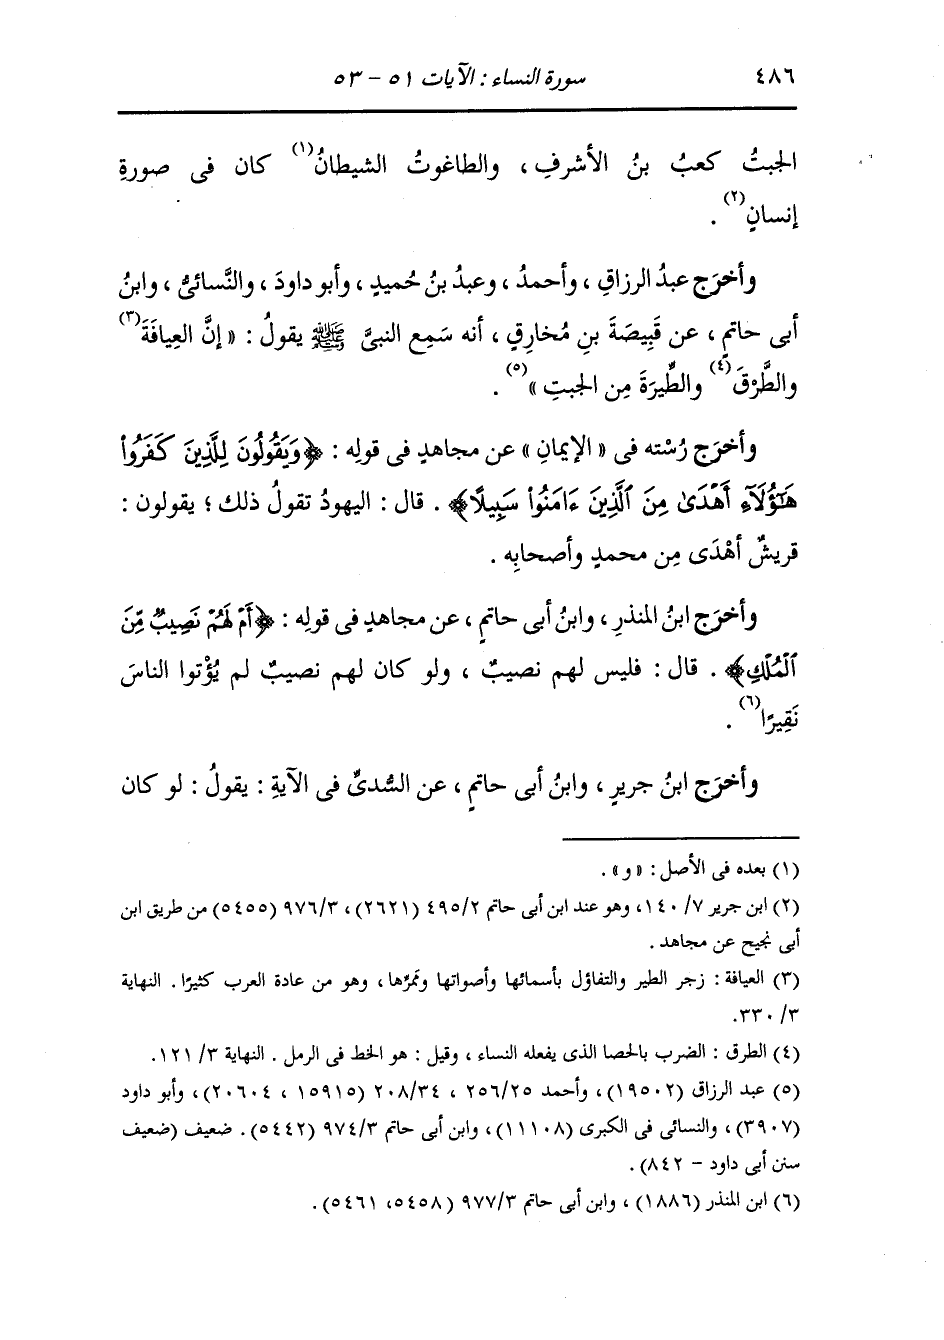 ٤٨٦ سورة النساء : الآيات ٥١ - ٥٣
الجبتُ كعبُ بنُ الأشرفِ ، والطاغوتُ الشيطانُ(١) كان فى صورةِ
إنسانٍ(٢) .
وأخرَج عبدُ الرزاقِ ، وأحمدُ ، وعبدُ بنُ حُميدٍ ، وأبو داودَ ، والنَّسائىُّ ، وابنُ
أبى حاتمٍ ، عن قَبِيصَةَ بنِ مُخارِقٍ ، أنه سَمِع النبىَّ ﷺ يقولُ : « إنَّ العِيافَةَ(٣)
والطَّرْقَ(٤) والطِّيَرَةَ مِن الجبتِ »(٥) .
وأخرَج رُسْته فى « الإيمانِ » عن مجاهدٍ فى قولِه : ﴿وَيَقُولُونَ لِلَّذِينَ كَفَرُوا۟
هَـٰٓؤُلَآءِ أَهْدَىٰ مِنَ ٱلَّذِينَ ءَامَنُوا۟ سَبِيلًا﴾ . قال : اليهودُ تقولُ ذلك ؛ يقولون :
قريشٌ أهْدَى مِن محمدٍ وأصحابِه .
وأخرَج ابنُ المنذرِ ، وابنُ أبى حاتمٍ ، عن مجاهدٍ فى قولِه : ﴿أَمْ لَهُمْ نَصِيبٌ مِّنَ
ٱلْمُلْكِ﴾ . قال : فليس لهم نصيبٌ ، ولو كان لهم نصيبٌ لم يُؤْتوا الناسَ
نَقِيرًا(٦) .
وأخرَج ابنُ جريرٍ ، وابنُ أبى حاتمٍ ، عن السُّدىِّ فى الآيةِ : يقولُ : لو كان
(١) بعده فى الأصل : « و » .
(٢) ابن جرير ٧/ ١٤٠، وهو عند ابن أبى حاتم ٤٩٥/٢ (٢٦٢١)، ٩٧٦/٣ (٥٤٥٥) من طريق ابن
أبى نجيح عن مجاهد .
(٣) العيافة : زجر الطير والتفاؤل بأسمائها وأصواتها وممَرِّها ، وهو من عادة العرب كثيرًا . النهاية
٣/ ٣٣٠.
(٤) الطرق : الضرب بالحصا الذى يفعله النساء ، وقيل : هو الخط فى الرمل . النهاية ٣/ ١٢١.
(٥) عبد الرزاق (١٩٥٠٢)، وأحمد ٢٥٦/٢٥ ، ٢٠٨/٣٤ (١٥٩١٥ ، ٢٠٦٠٤)، وأبو داود
(٣٩٠٧)، والنسائى فى الكبرى (١١١٠٨)، وابن أبى حاتم ٩٧٤/٣ (٥٤٤٢). ضعيف (ضعيف
سنن أبى داود - ٨٤٢).
(٦) ابن المنذر (١٨٨٦) ، وابن أبى حاتم ٩٧٧/٣ (٥٤٥٨، ٥٤٦١).